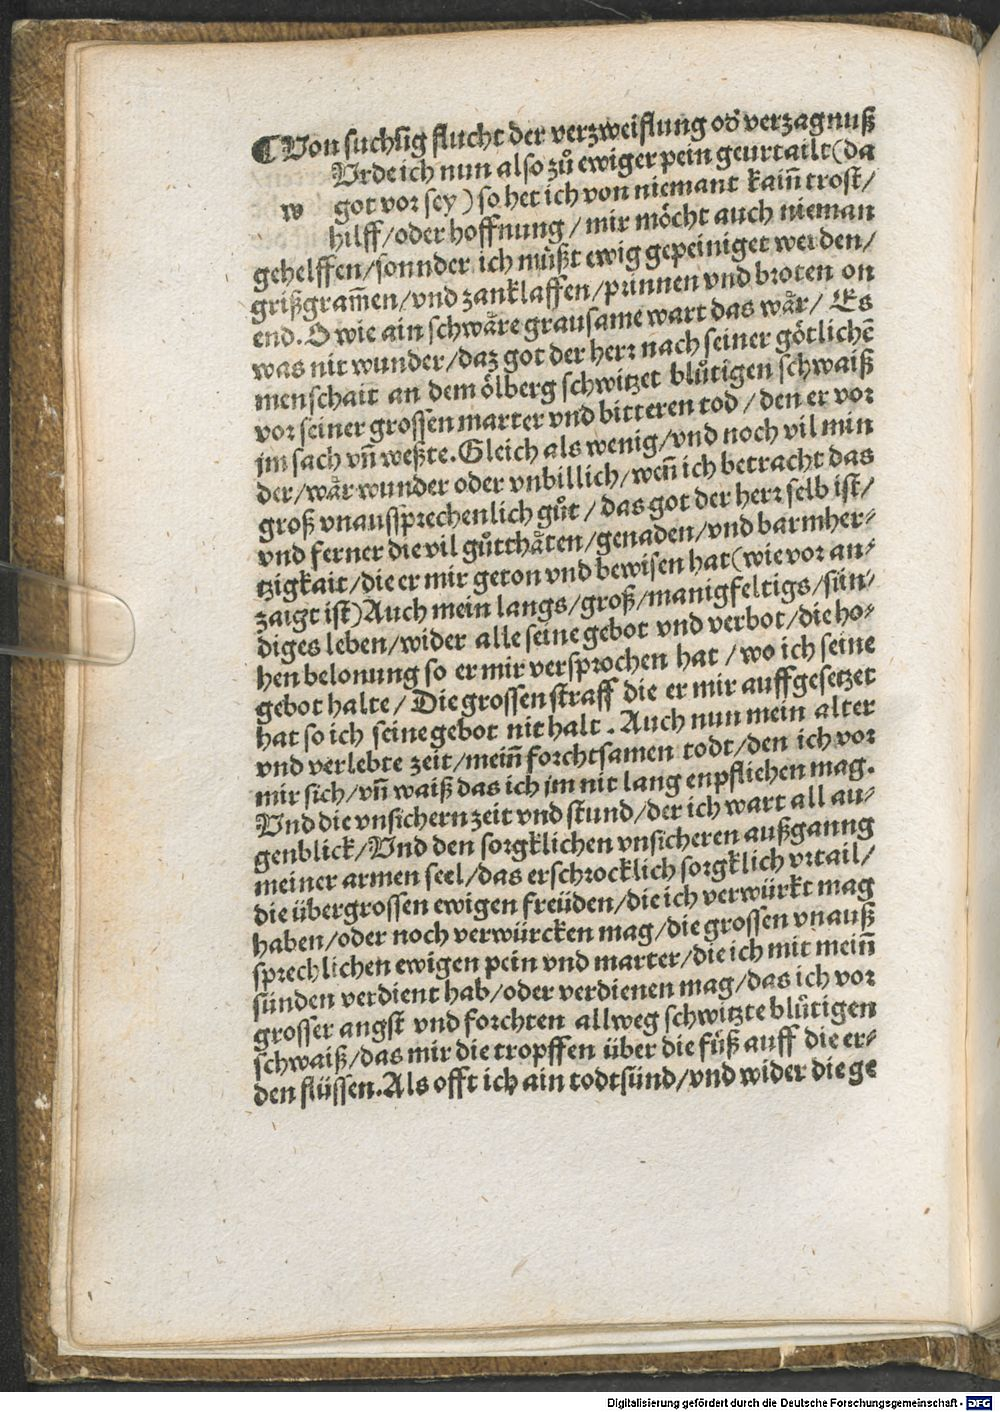 ¶ Von suchsig flucht der verzweiflung od̕ verzagnuß
Vrde ich nun also zů ewiger pein geurtailt (da
w got vor sey) so het ich von niemant kaiñ trost/
hilff/oder hoffnung/mir möcht auch nieman
gehelffen/sonnder ich můßt ewig gepeiniget werden/
grißgram̃en/vnd zanklaffen/prinnen vnd broten on
end. O wie ain schwåre grausame wart das wår/ Es
was nit wunder/daz got der herr nach seiner götlichē
menschait an dem ölberg schwitzet blůtigen schwaiß
vor seiner grossen marter vnd bitteren tod/den er vor
jm sach vñ weßte. Gleich als wenig/vnd noch vil min
der/wår wunder oder vnbillich/weñ ich betracht das
groß vnaussprechenlich gůt/das got der herr selb ist/
vnd ferner die vil gůtthåten/genaden/vnd barmher-
tzigkait/die er mir geton vnd bewisen hat (wie vor an-
zaigt ist) Auch mein langs/groß/manigfeltigs/sün-
diges leben/wider alle seine gebot vnd verbot/die ho-
hen belonung so er mir versprochen hat/wo ich seine
gebot halte/Die grossen straff die er mir auffgesetzet
hat so ich seine gebot nit halt. Auch nun mein alter
vnd verlebte zeit/meiñ forchtsamen todt/den ich vor
mir sich/vñ waiß das ich jm nit lang enpfliehen mag.
Vnd die vnsichern zeit vnd stund/der ich wart all au-
genblick/Vnd den sorgklichen vnsicheren außganng
meiner armen seel/das erschrocklich sorgklich vrtail/
die übergrossen ewigen freüden/die ich verwürkt mag
haben/oder noch verwürcken mag/die grossen vnauß
sprechlichen ewigen pein vnd marter/die ich mit meiñ
sünden verdient hab/oder verdienen mag/das ich vor
grosser angst vnd forchten allweg schwitzte blůtigen
schwaiß/das mir die tropffen über die fůß auff die er-
den flüssen. Als offt ich ain todtsünd/vnd wider die ge
Digitalisierung gefördert durch die Deutsche Forschungsgemeinschaft - DFG